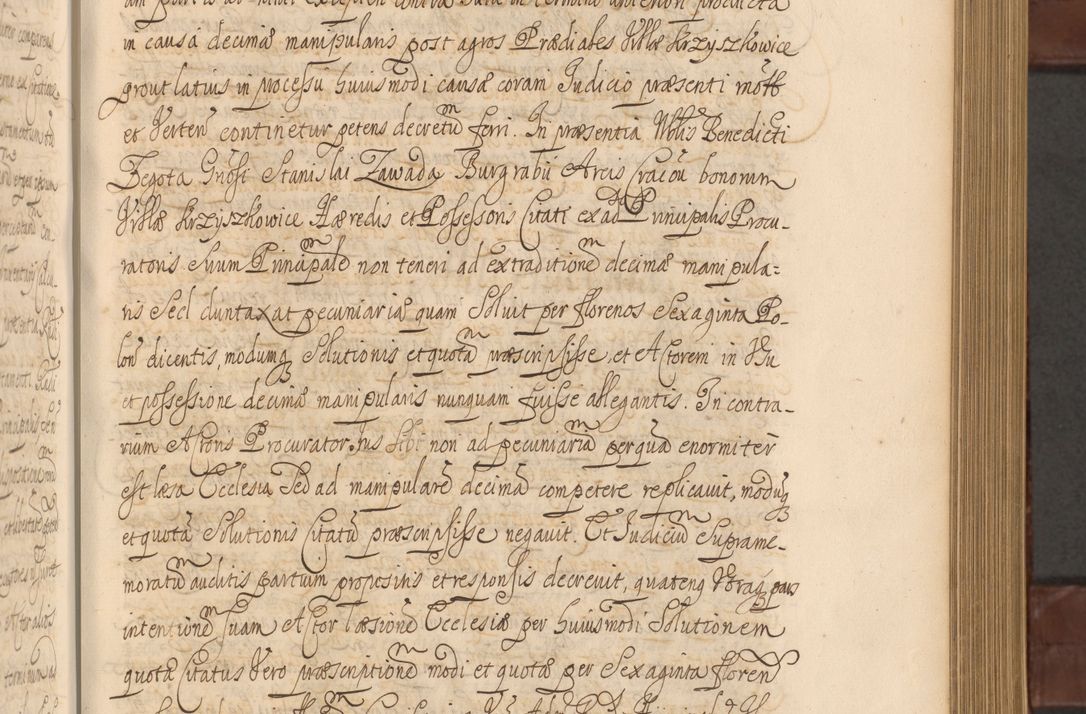 in causa decimæ manipularis post agros Prædiales Villæ Krzyszkowice
prout latius in processu huiusmodi causæ coram Judicio præsenti mōtæ
et Verten̄ continetur petens decretū ferri. In præsentia Nblis Benedicti
Zegota Gn̄osi Stanislai Zawada Burgrabii Arcis Cracōu bonorum
Villæ Krzyszkowice Hæredis et Possessoris Citati ex ad Principalis Procu-
ratoris Suum Principalē non teneri ad extraditionē decimæ manipula=
ris Sed duntaxat pecuniariæ quam Soluit per florenos Sexaginta Po-
lon̄ dicentis, modumq Solutionis et quotā præscripsisse et Actorem in Usu
et possessione decimæ manipularis nunquam fuisse allegantis. In contra-
rium Actoris Procurator Jus Sibi non ad pecuniariā per quā enormiter
est læsa Ecclesia Sed ad manipularē decimā competere replicauit, modūq
et quotā Solutionis Citatū præscripsisse negauit. Et Judiciū Suprame-
moratū auditis partium propositis et responsis decreuit, quatenq Utraq pars
intentionē suam Actor læsionē Ecclesiæ per huiusmodi Solutionem
quotæ Citatus Vero præscriptionē modi et quotæ per Sexaginta floren̄